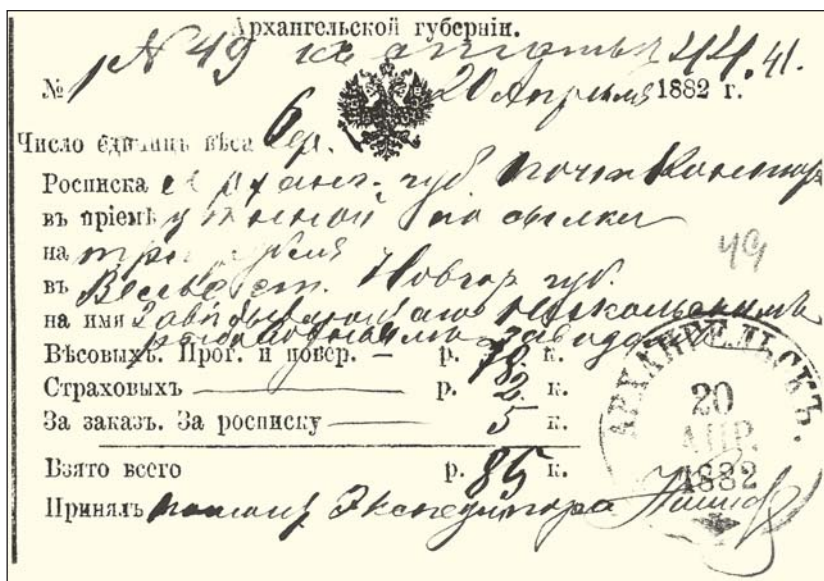 Архангельской губерніи.
№ 1 N 49 къ 44.41.
20 Апрѣля 1882 г.
Число единицъ вѣса 6 ф.
Росписка Арханг. губ. почт. Конторы
въ пріемѣ цѣнной посылки
на три рубля
въ ст. Новгор. губ.
49
на имя Завѣдывающаго Никольскимъ
рыбоводнымъ заводомъ
Вѣсовыхъ. Прог. и повер. — р. 78 к.
Страховыхъ — р. 2 к.
За заказъ. За росписку — 5 к.
Взято всего р. 85 к.
Принялъ помощ. Экспедитора
АРХАНГЕЛЬСКЪ.
20
АПР.
1882